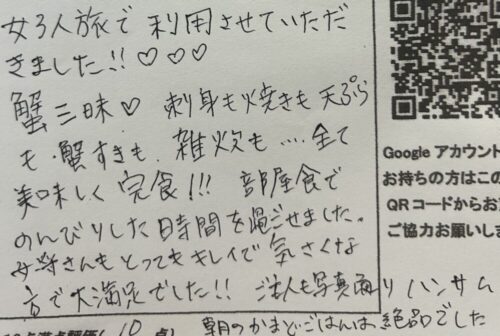 女3人旅で利用させていただ
きました!!♡♡♡
蟹三昧♡ 刺身も焼きも天ぷら
も・蟹すきも、雑炊も….全て
美味しく完食!!! 部屋食で
のんびりした時間を過ごせました。
女将さんもとってもキレイで気さくな
方で大満足でした!! ご主人も写真通りハンサム
朝のかまどごはんは絶品でした
10 点)
Google アカウント
お持ちの方はこの
QRコードからお
ご協力お願いしま